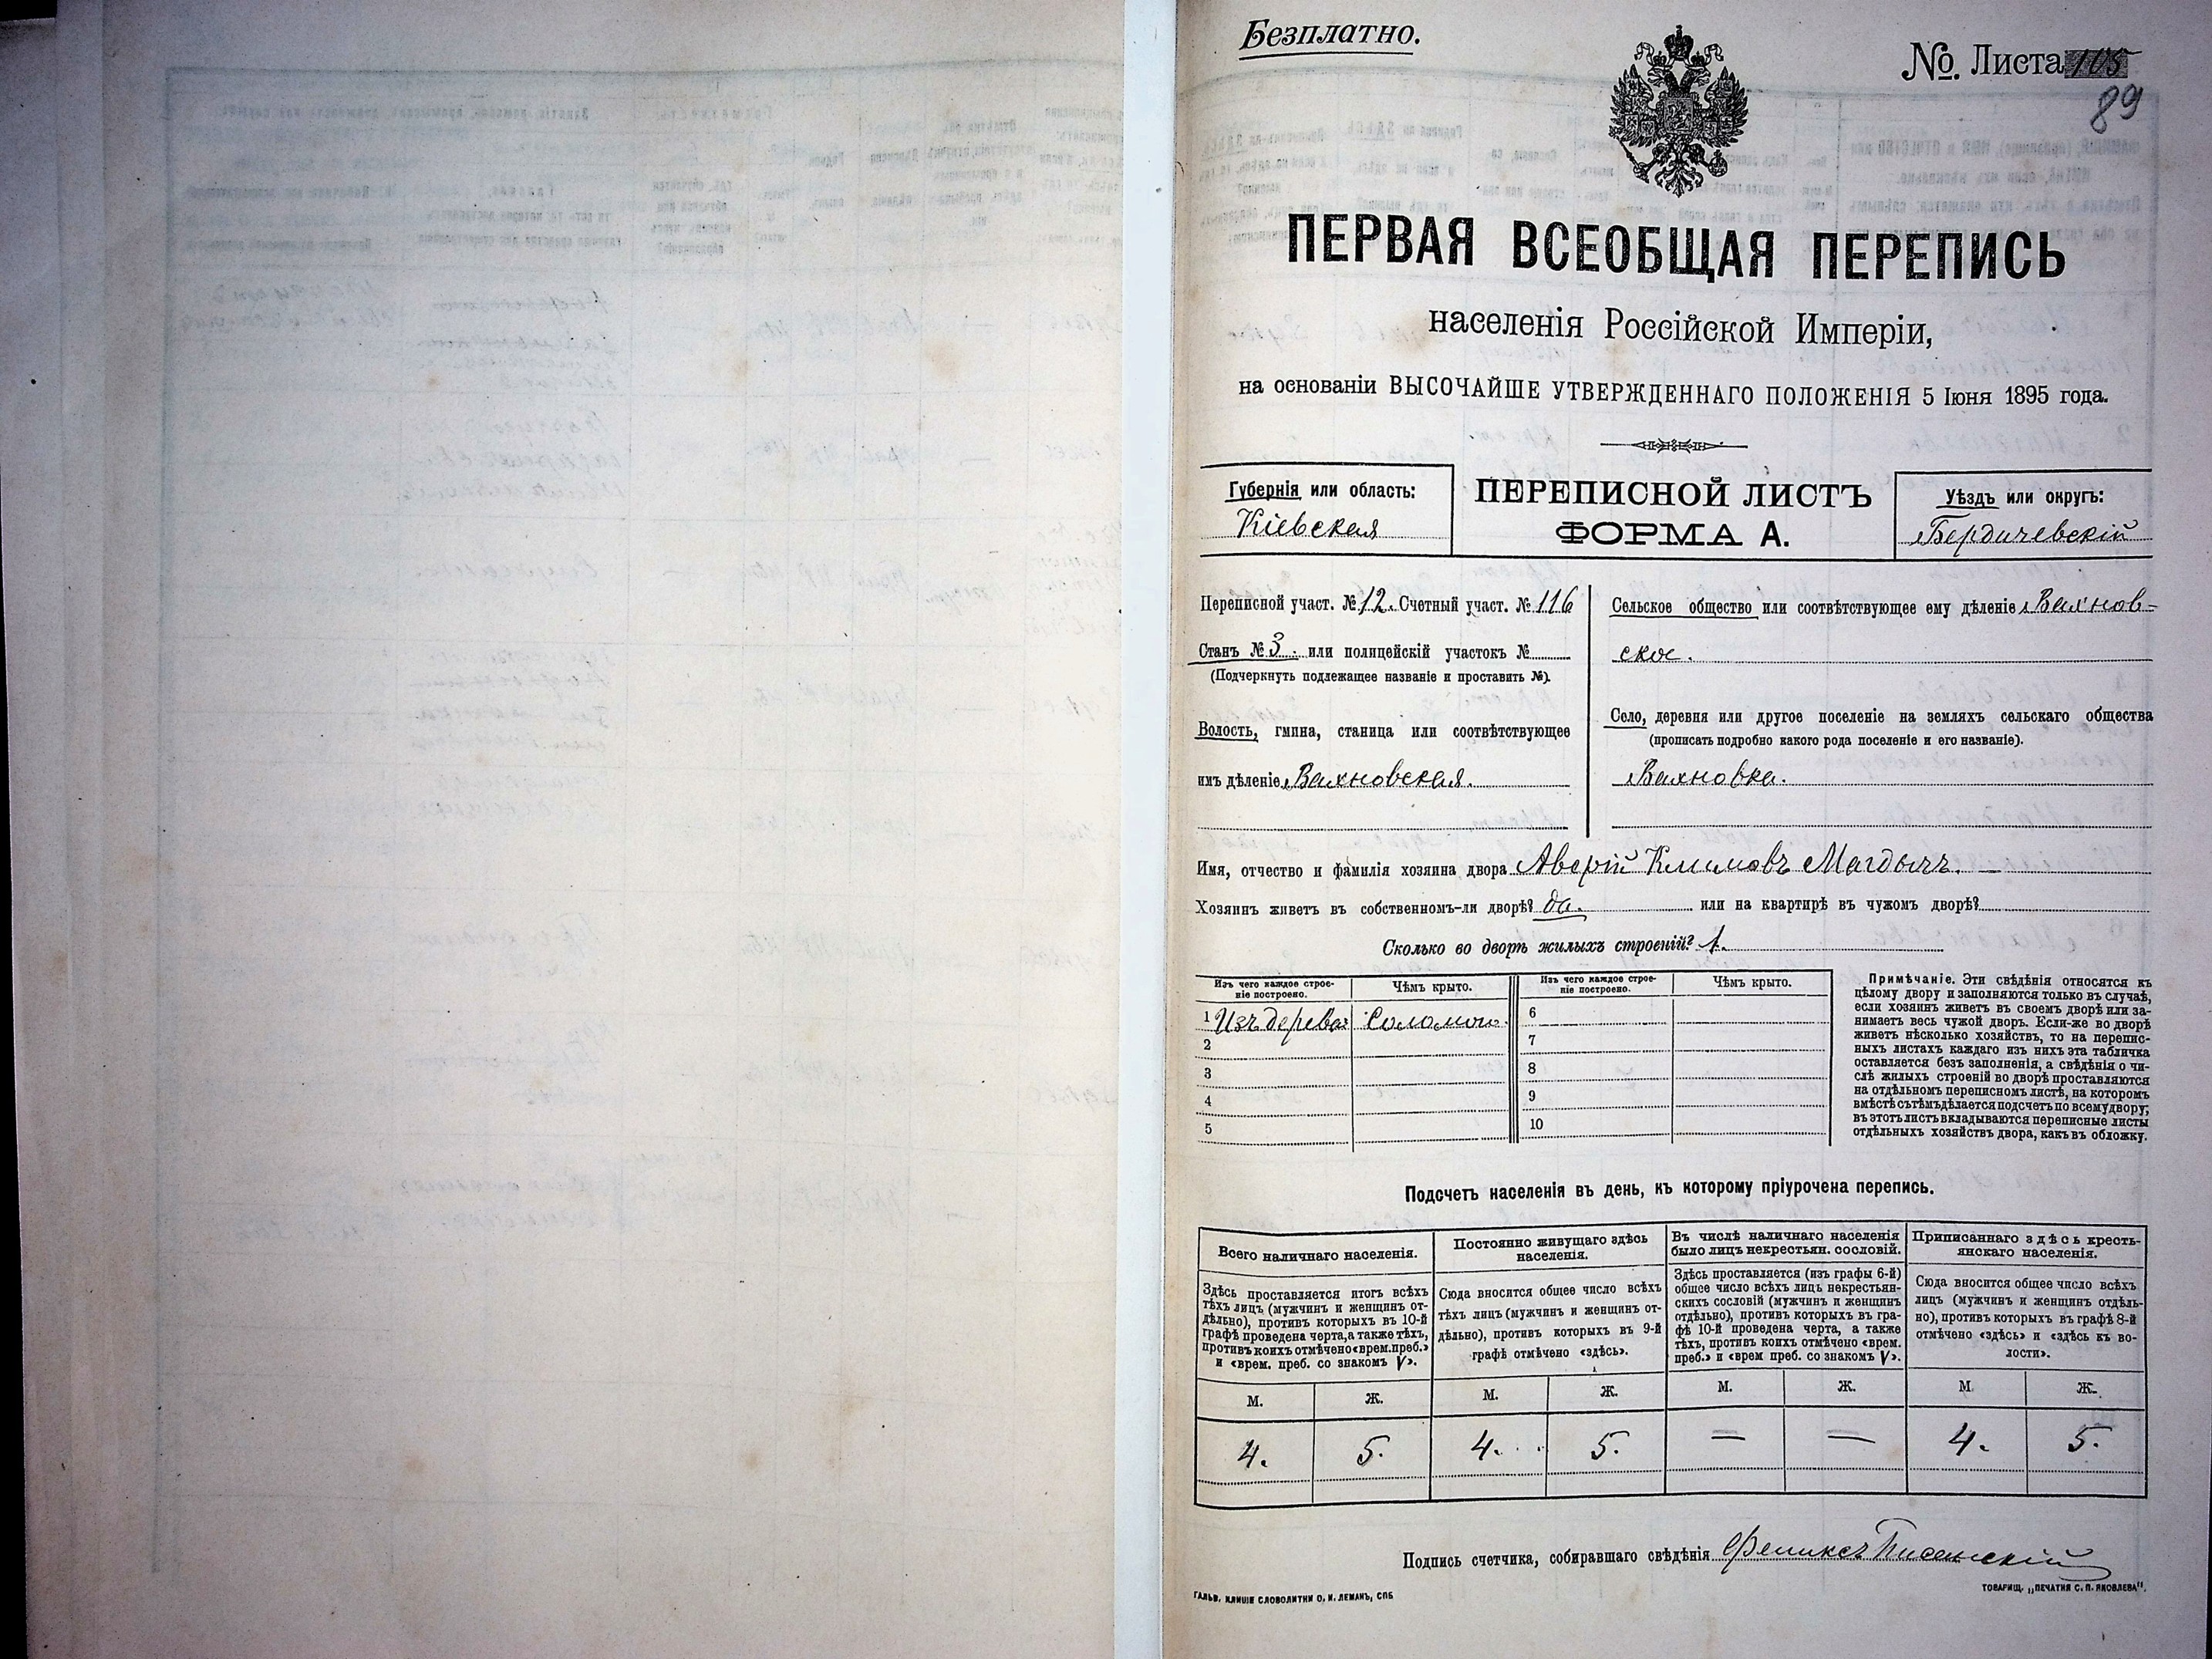 Безплатно.
№ Листа 105
89
ПЕРВАЯ ВСЕОБЩАЯ ПЕРЕПИСЬ
населенія Россійской Имперіи,
на основаніи ВЫСОЧАЙШЕ УТВЕРЖДЕННАГО ПОЛОЖЕНІЯ 5 Іюня 1895 года.
Губернія или область:
Кіевская
ПЕРЕПИСНОЙ ЛИСТЪ
ФОРМА А.
Уѣздъ или округъ:
Бердичевскій
Переписной участ. № 12. Счетный участ. № 116
Станъ № 3. или полицейскій участокъ №
(Подчеркнуть подлежащее названіе и проставить №).
Волость, гмина, станица или соотвѣтствующее
имъ дѣленіе Вахновская.
Сельское общество или соотвѣтствующее ему дѣленіе Вахнов-
ское.
Село, деревня или другое поселеніе на земляхъ сельскаго общества
(прописать подробно какого рода поселеніе и его названіе).
Вахновка.
Имя, отчество и фамилія хозяина двора Аверій Климовъ Магдычъ. —
Хозяинъ живетъ въ собственномъ-ли дворѣ? да. или на квартирѣ въ чужомъ дворѣ?
Сколько во дворѣ жилыхъ строеній? 1.
Изъ чего каждое строе-
ніе построено.
Чѣмъ крыто.
Изъ чего каждое строе-
ніе построено.
Чѣмъ крыто.
1 Изъ дерева Соломою. 6
2 7
3 8
4 9
5 10
Примѣчаніе. Эти свѣдѣнія относятся къ
цѣлому двору и заполняются только въ случаѣ,
если хозяинъ живетъ въ своемъ дворѣ или за-
нимаетъ весь чужой дворъ. Если-же во дворѣ
живетъ нѣсколько хозяйствъ, то на перепис-
ныхъ листахъ каждаго изъ нихъ эта табличка
оставляется безъ заполненія, а свѣдѣнія о чи-
слѣ жилыхъ строеній во дворѣ проставляются
на отдѣльномъ переписномъ листѣ, на которомъ
вмѣстѣ съ тѣмъ дѣлается подсчетъ по всему двору;
въ этотъ листъ вкладываются переписные листы
отдѣльныхъ хозяйствъ двора, какъ въ обложку.
Подсчетъ населенія въ день, къ которому пріурочена перепись.
Всего наличнаго населенія.
Постоянно живущаго здѣсь
населенія.
Въ числѣ наличнаго населенія
было лицъ некрестьян. сословій.
Приписаннаго здѣсь кресть-
янскаго населенія.
Здѣсь проставляется итогъ всѣхъ
тѣхъ лицъ (мужчинъ и женщинъ от-
дѣльно), противъ которыхъ въ 10-й
графѣ проведена черта, а также тѣхъ,
противъ коихъ отмѣчено «врем. преб.»
и «врем. преб. со знакомъ V».
Сюда вносится общее число всѣхъ
тѣхъ лицъ (мужчинъ и женщинъ от-
дѣльно), противъ которыхъ въ 9-й
графѣ отмѣчено «здѣсь».
Здѣсь проставляется (изъ графы 6-й)
общее число всѣхъ лицъ некрестьян-
скихъ сословій (мужчинъ и женщинъ
отдѣльно), противъ которыхъ въ гра-
фѣ 10-й проведена черта, а также
тѣхъ, противъ коихъ отмѣчено «врем.
преб.» и «врем преб. со знакомъ V».
Сюда вносится общее число всѣхъ
лицъ (мужчинъ и женщинъ отдѣль-
но), противъ которыхъ въ графѣ 8-й
отмѣчено «здѣсь» и «здѣсь къ во-
лости».
М. Ж. М. Ж. М. Ж. М. Ж.
4. 5. 4. 5. — — 4. 5.
Подпись счетчика, собиравшаго свѣдѣнія Феликсъ
ГАЛЬВ. КЛИШЕ СЛОВОЛИТНИ О. И. ЛЕМАНЪ, СПБ
ТОВАРИЩ. „ПЕЧАТНЯ С. П. ЯКОВЛЕВА".